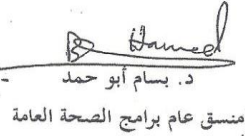 Hamed
د. بسام أبو حمد
منسق عام برامج الصحة العامة